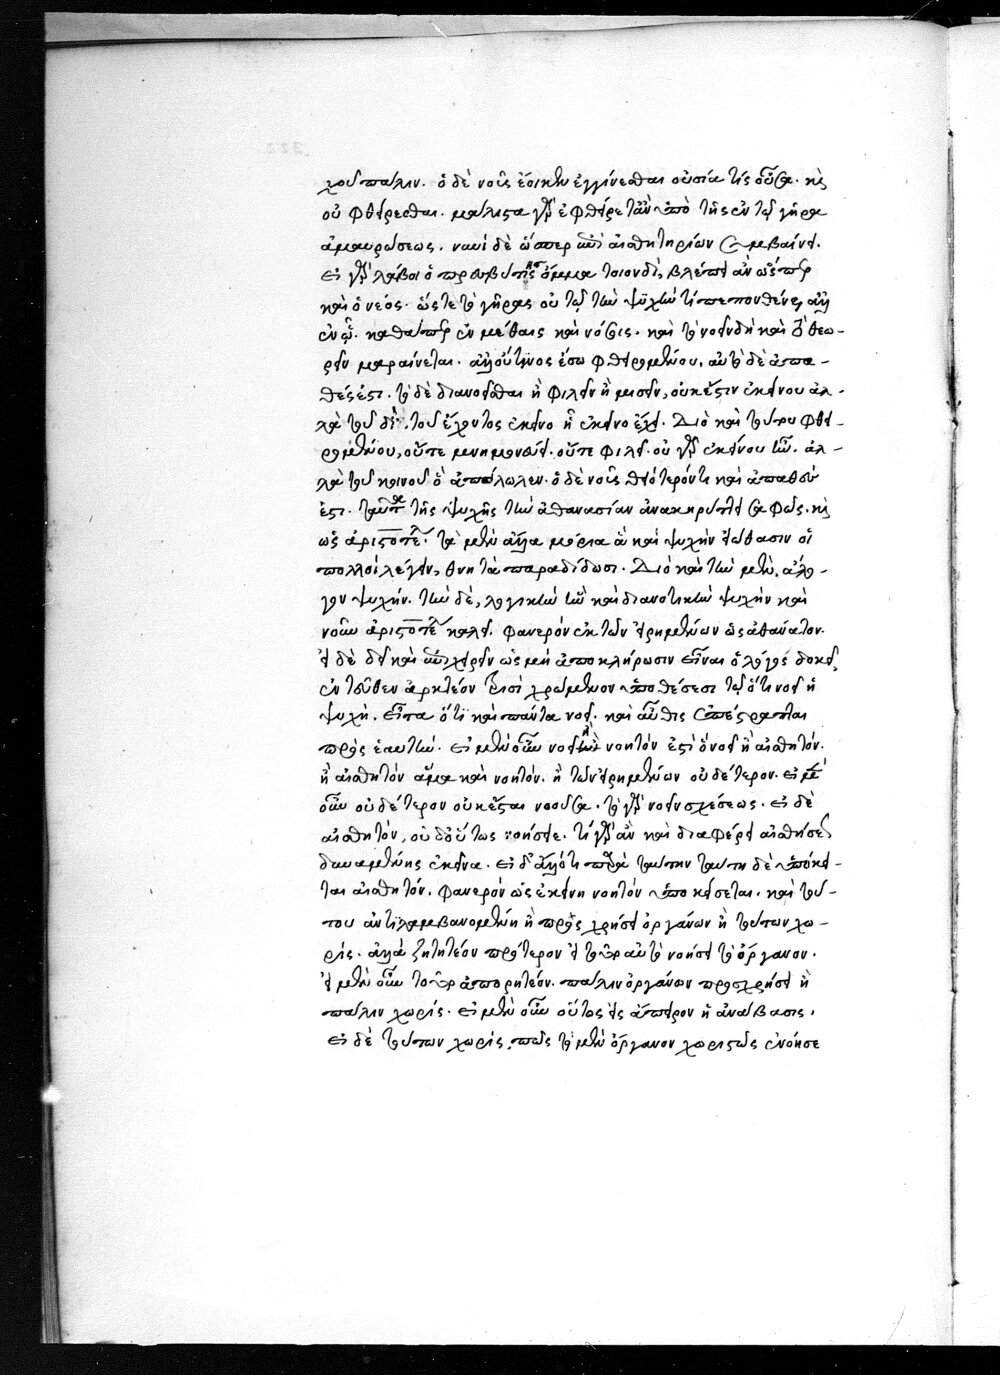 χου πάλιν. ὁ δὲ νοῦς ἔοικεν ἐγγίνεσθαι οὐσία τὶς οὖσα. καὶ
οὐ φθείρεσθαι. μάλιστα γὰρ ἐφθείρετ' ἂν ὑπὸ τῆς ἐν τῷ γήρᾳ
ἀμαυρώσεως. νυνὶ δὲ ὥσπερ ἐπὶ αἰσθητηρίων συμβαίνει.
εἰ γὰρ λάβοι ὁ πρεσβύτης ὄμμα τοιονδὶ, βλέπει ἂν ὥσπερ
καὶ ὁ νέος. ὥστε τὸ γῆρας οὐ τῷ τὴν ψυχήν τι πεπονθέναι, ἀλλ'
ἐν ᾧ. καθάπερ ἐν μέθαις καὶ νόσοις. καὶ τὸ νοεῖν δὴ καὶ τὸ θεω-
ρεῖν μαραίνεται. ἄλλου τινὸς ἔσω φθειρομένου, αὐτὸ δὲ ἀπα-
θές ἐστι. τὸ δὲ διανοεῖσθαι ἢ φιλεῖν ἢ μισεῖν, οὐκ ἔστιν ἐκείνου ἀλ-
λὰ τοῦ δὶ, τοῦ ἔχοντος ἐκεῖνο ᾗ ἐκεῖνο ἔχει. Διὸ καὶ τούτου φθει-
ρομένου, οὔτε μνημονεύει. οὔτε φιλεῖ. οὐ γὰρ ἐκείνου ἦν. ἀλ-
λὰ τοῦ κοινοῦ ὃ ἀπόλωλεν. ὁ δὲ νοῦς θειότερόν τι καὶ ἀπαθὲς
ἐστι. τῆς ψυχῆς τὴν ἀθανασίαν ἀνακηρύττει σαφῶς. καὶ
ὡς ἀριστοτέλ. τὰ μὲν ἄλλα μόρια ἃ καὶ ψυχὴν εἰώθασιν οἱ
πολλοὶ λέγειν, θνητὰ παραδίδωσι. Διὸ καὶ τὴν μὲν, ἄλο-
γον ψυχήν. τὴν δὲ, λογικὴν καὶ διανοητικὴν ψυχὴν καὶ
νοῦν ἀριστοτέλ καλεῖ. φανερὸν ἐκ τῶν εἰρημένων ὡς ἀθάνατον.
εἰ δὲ δεῖ καὶ ἐπιχειρεῖν ὡς μὴ ἀποκλήρωσιν εἶναι ὁ λόγος δοκεῖ,
ἐντεῦθεν ἀρκτέον τισὶ χρώμενον ὑποθέσεσι τῷ ὅτι νοεῖ ἡ
ψυχή. εἶτα ὅτι καὶ πάντα νοεῖ. καὶ αὖθις ἐπέστραπται
πρὸς ἑαυτήν. εἰ μὲν οὖν νοεῖ ἢ νοητόν ἐστι ὃ νοεῖ ἢ αἰσθητόν.
ἢ αἰσθητὸν ἅμα καὶ νοητόν. ἢ τῶν εἰρημένων οὐδέτερον. εἰ μὲν
οὖν οὐδέτερον οὐκ ἔσται νοοῦσα. τὸ γὰρ νοεῖν σχέσεως. εἰ δὲ
αἰσθητὸν, οὐδ' οὕτως νοήσειε. τί γὰρ ἂν καὶ διαφέρει αἰσθήσεως
δυναμένης ἐκεῖνα. εἰ δ' ἄλλό τι παρὰ ταύτην ταύτη δὲ ὑπόκει-
ται αἰσθητόν. φανερὸν ὡς ἐκείνη νοητὸν ὑποκείσεται. καὶ τού-
του ἀντιλαμβανομένη ἢ προσχρήσει ὀργάνων ἢ τούτων χω-
ρίς. ἀλλὰ ζητητέον πρότερον εἰ τοῦτο αὐτὸ νοήσει τὸ ὄργανον.
εἰ μὲν οὖν τοῦτο ἀπορητέον. πάλιν ὀργάνων προσχρήσει ἢ
πάλιν χωρίς. εἰ μὲν οὖν οὕτως εἰς ἄπειρον ἡ ἀνάβασις.
εἰ δὲ τούτων χωρίς, πῶς τὸ μὲν ὄργανον χωριστῶς ἐνόησε